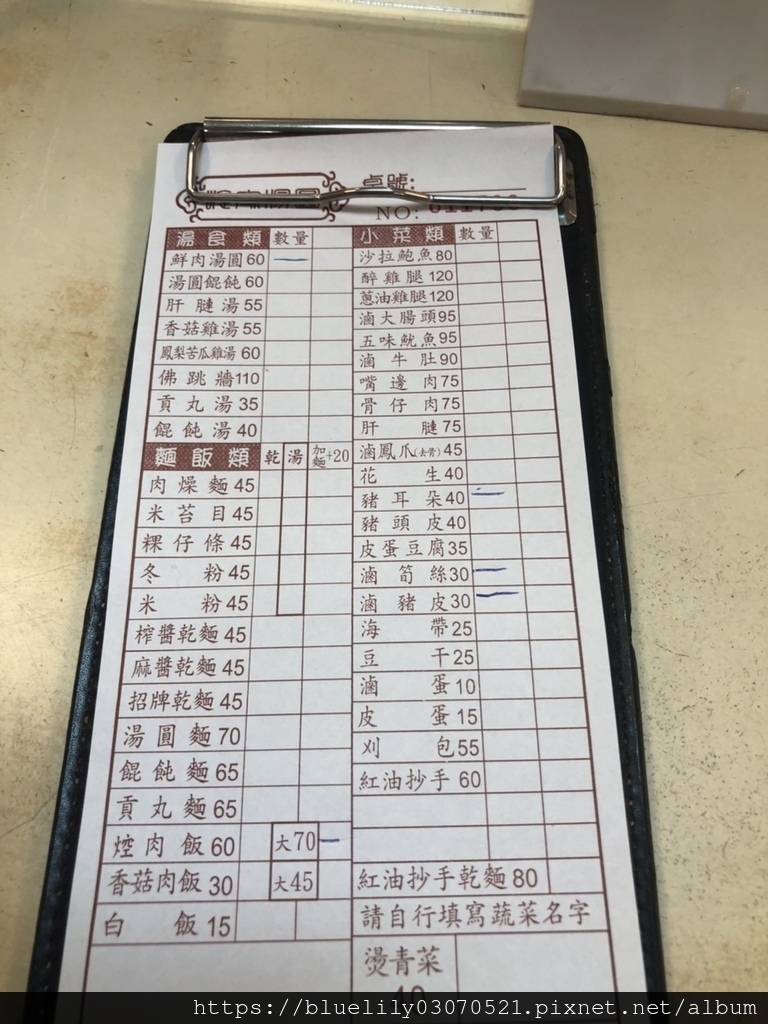 桌號:
NO:
湯食類 數量
鮮肉湯圓 60 一
湯圓餛飩 60
肝腱湯 55
香菇雞湯 55
鳳梨苦瓜雞湯 60
佛跳牆 110
貢丸湯 35
餛飩湯 40
麵飯類 乾 湯 加麵+20
肉燥麵 45
米苔目 45
粿仔條 45
冬粉 45
米粉 45
榨醬乾麵 45
麻醬乾麵 45
招牌乾麵 45
湯圓麵 70
餛飩麵 65
貢丸麵 65
焢肉飯 60 大70 一
香菇肉飯 30 大45
白飯 15
小菜類 數量
沙拉鮑魚 80
醉雞腿 120
蔥油雞腿 120
滷大腸頭 95
五味魷魚 95
滷牛肚 90
嘴邊肉 75
骨仔肉 75
肝腱 75
滷鳳爪(去骨) 45
花生 40
豬耳朵 40 一
豬頭皮 40
皮蛋豆腐 35
滷筍絲 30 一
滷豬皮 30 一
海帶 25
豆干 25
滷蛋 10
皮蛋 15
刈包 55
紅油抄手 60
紅油抄手乾麵 80
請自行填寫蔬菜名字
燙青菜
https://bluelily03070521.pixnet.net/album